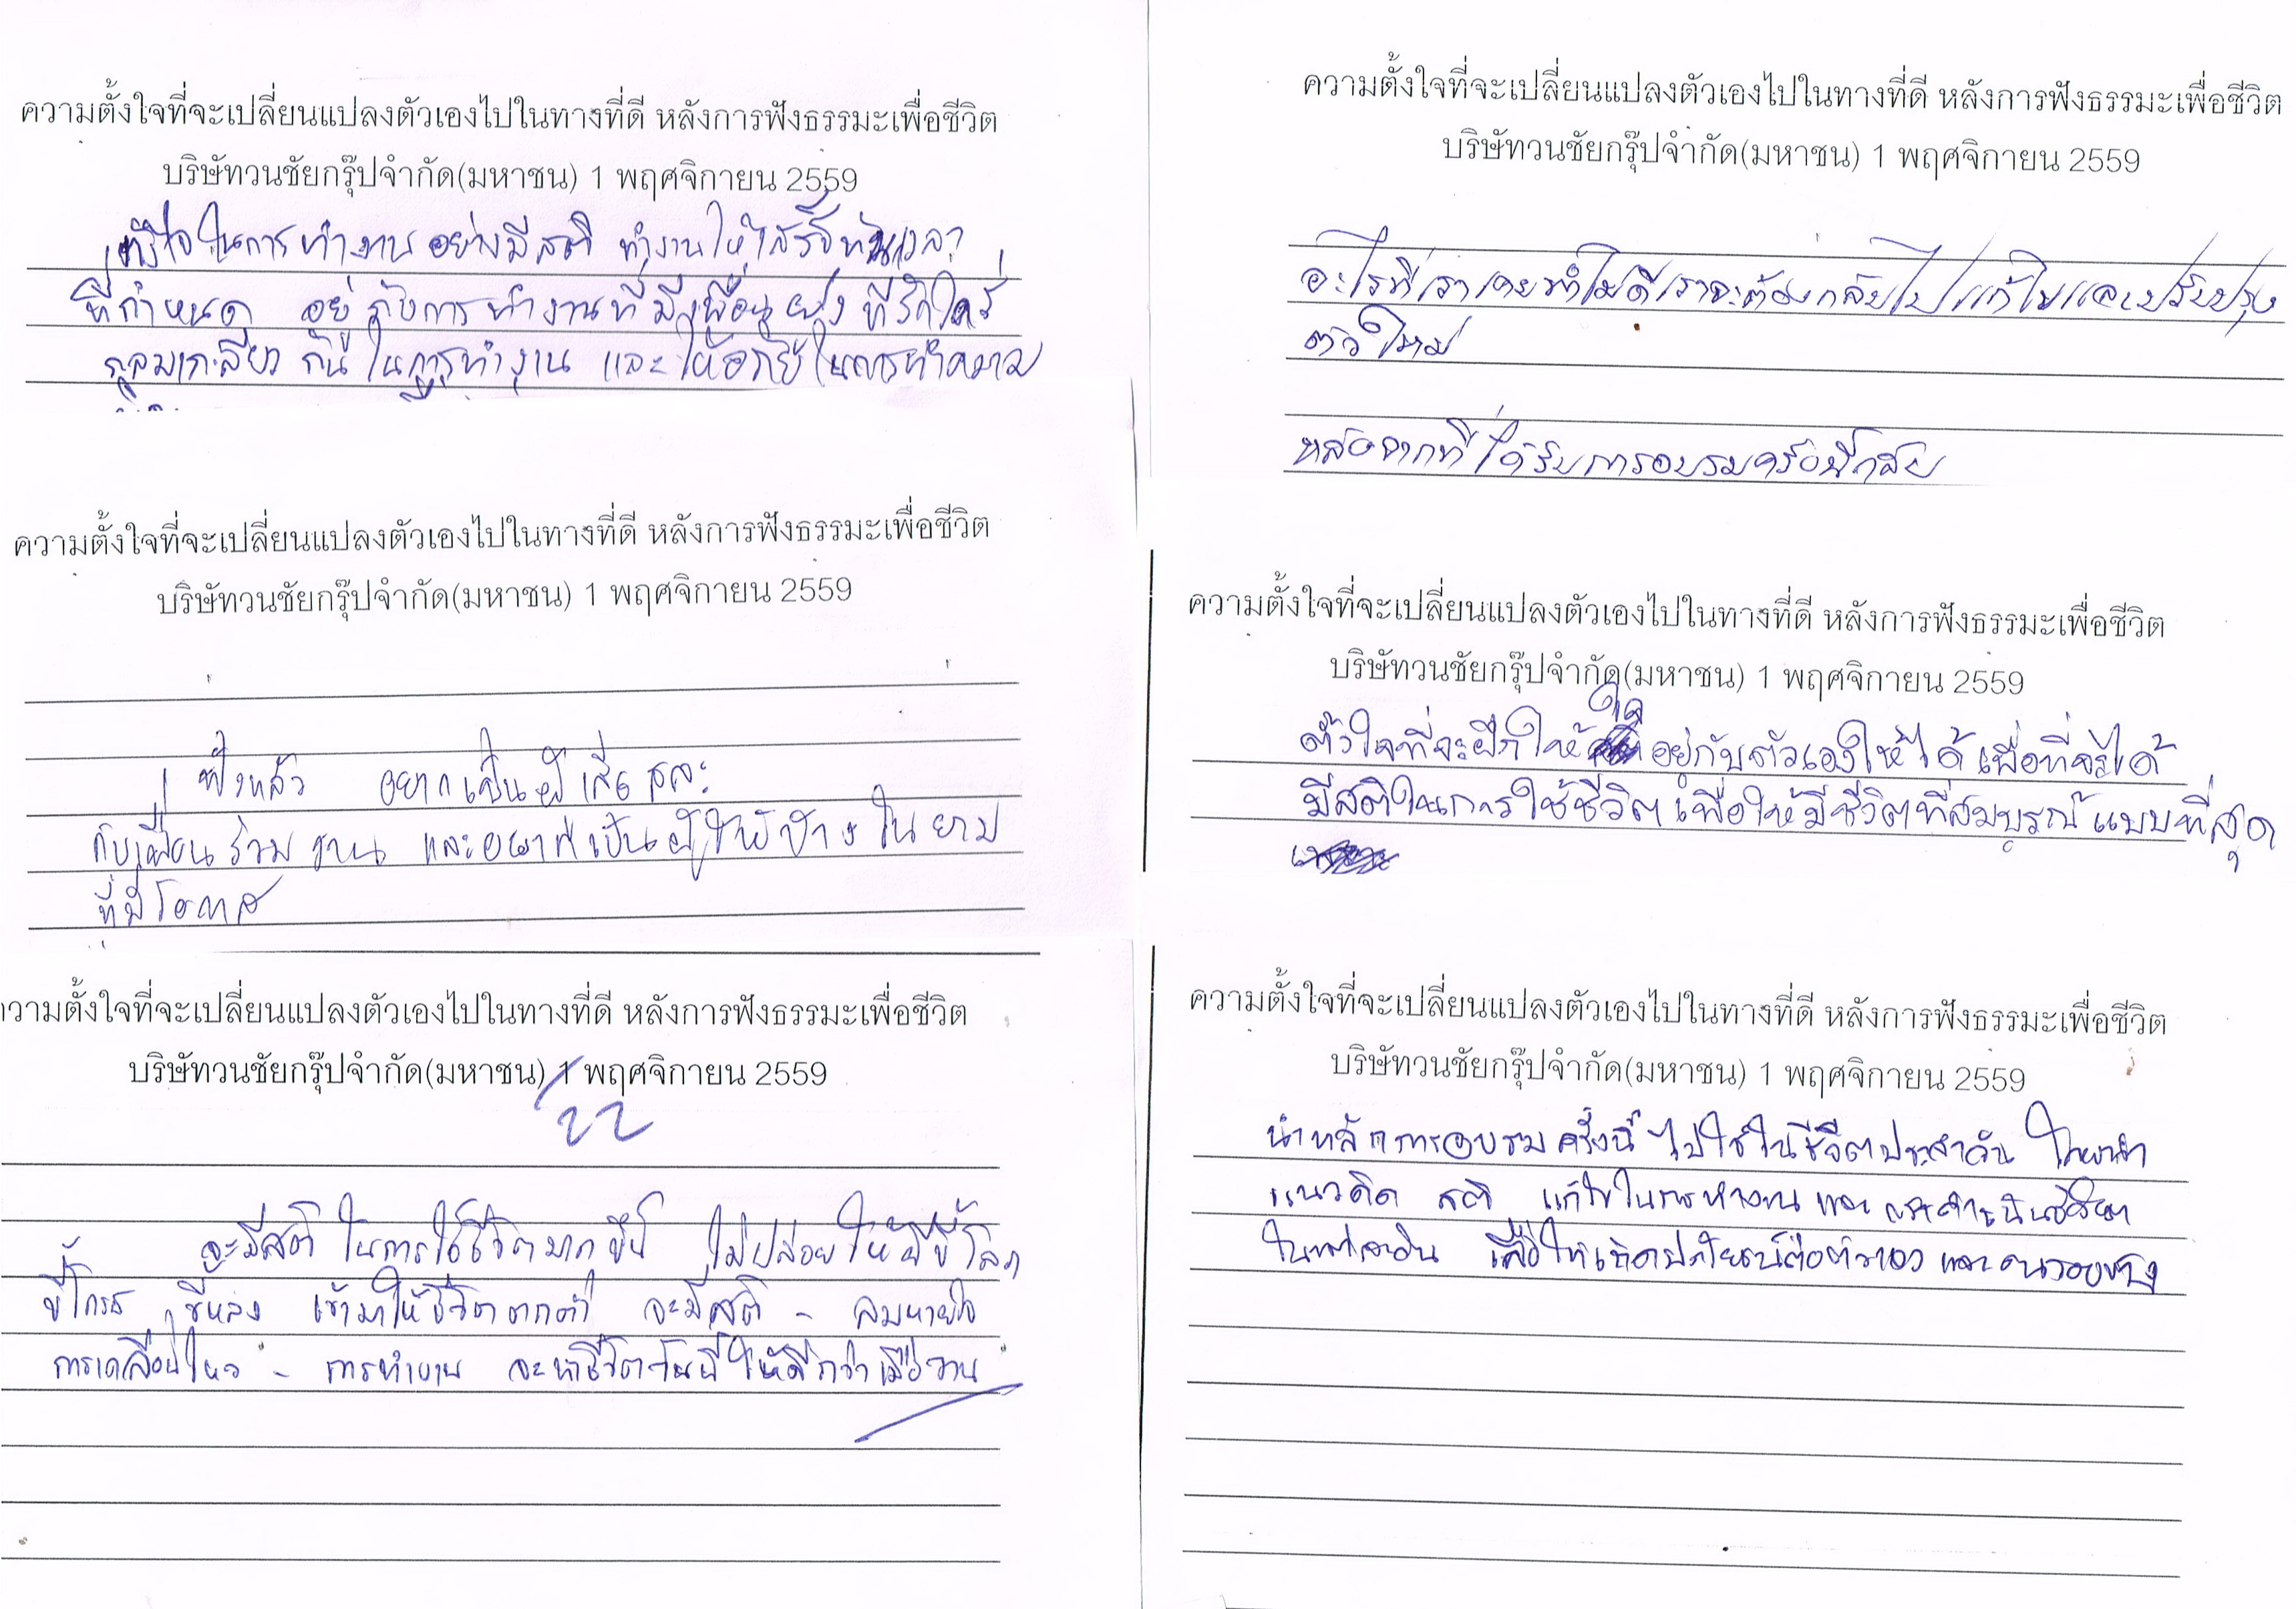 ความตั้งใจที่จะเปลี่ยนแปลงตัวเองไปในทางที่ดี หลังการฟังธรรมะเพื่อชีวิต
บริษัทวนชัยกรุ๊ปจำกัด(มหาชน) 1 พฤศจิกายน 2559
ตั้งใจในการทำงานอย่างมีสติ ทำงานให้เสร็จทันเวลา
ที่กำหนด อยู่กับการทำงานที่มีเพื่อนฝูง ที่รักใคร่
กลมเกลียว กันในการทำงาน และให้อภัยในการทำความ
ความตั้งใจที่จะเปลี่ยนแปลงตัวเองไปในทางที่ดี หลังการฟังธรรมะเพื่อชีวิต
บริษัทวนชัยกรุ๊ปจำกัด(มหาชน) 1 พฤศจิกายน 2559
ฟังแล้ว อยากเป็นผู้เสียสละ
กับเพื่อนร่วมงาน และอยากเป็นผู้ให้บ้างในยาม
ที่มีโอกาส
ความตั้งใจที่จะเปลี่ยนแปลงตัวเองไปในทางที่ดี หลังการฟังธรรมะเพื่อชีวิต
บริษัทวนชัยกรุ๊ปจำกัด(มหาชน) 1 พฤศจิกายน 2559
22
จะมีสติ ในการใช้ชีวิตมากขึ้น ไม่ปล่อยให้ขี้โลภ
ขี้โกรธ ขี้หลง เข้ามาให้ชีวิตตกต่ำ จะมีสติ - ลมหายใจ
การเคลื่อนไหว - การทำงาน จะทำชีวิตวันนี้ให้ดีกว่าเมื่อวาน
ความตั้งใจที่จะเปลี่ยนแปลงตัวเองไปในทางที่ดี หลังการฟังธรรมะเพื่อชีวิต
บริษัทวนชัยกรุ๊ปจำกัด(มหาชน) 1 พฤศจิกายน 2559
อะไรที่เราเคยทำไม่ดีเราจะต้องกลับไปแก้ไขและปรับปรุง
ตัวใหม่
หลังจากที่ได้รับการอบรมครั้งนี้กลับ
ความตั้งใจที่จะเปลี่ยนแปลงตัวเองไปในทางที่ดี หลังการฟังธรรมะเพื่อชีวิต
บริษัทวนชัยกรุ๊ปจำกัด(มหาชน) 1 พฤศจิกายน 2559
ตั้งใจที่จะฝึกให้ใจอยู่กับตัวเองให้ได้ เพื่อที่จะได้
มีสติในการใช้ชีวิต เพื่อให้มีชีวิตที่สมบูรณ์แบบที่สุด
ความตั้งใจที่จะเปลี่ยนแปลงตัวเองไปในทางที่ดี หลังการฟังธรรมะเพื่อชีวิต
บริษัทวนชัยกรุ๊ปจำกัด(มหาชน) 1 พฤศจิกายน 2559
นำหลักการอบรมครั้งนี้ ไปใช้ในชีวิตประจำวัน โดยนำ
แนวคิด สติ แก้ไขในการทำงาน และการดำเนินชีวิต
ในแต่ละวัน เพื่อให้เกิดประโยชน์ต่อตัวเอง และคนรอบข้าง